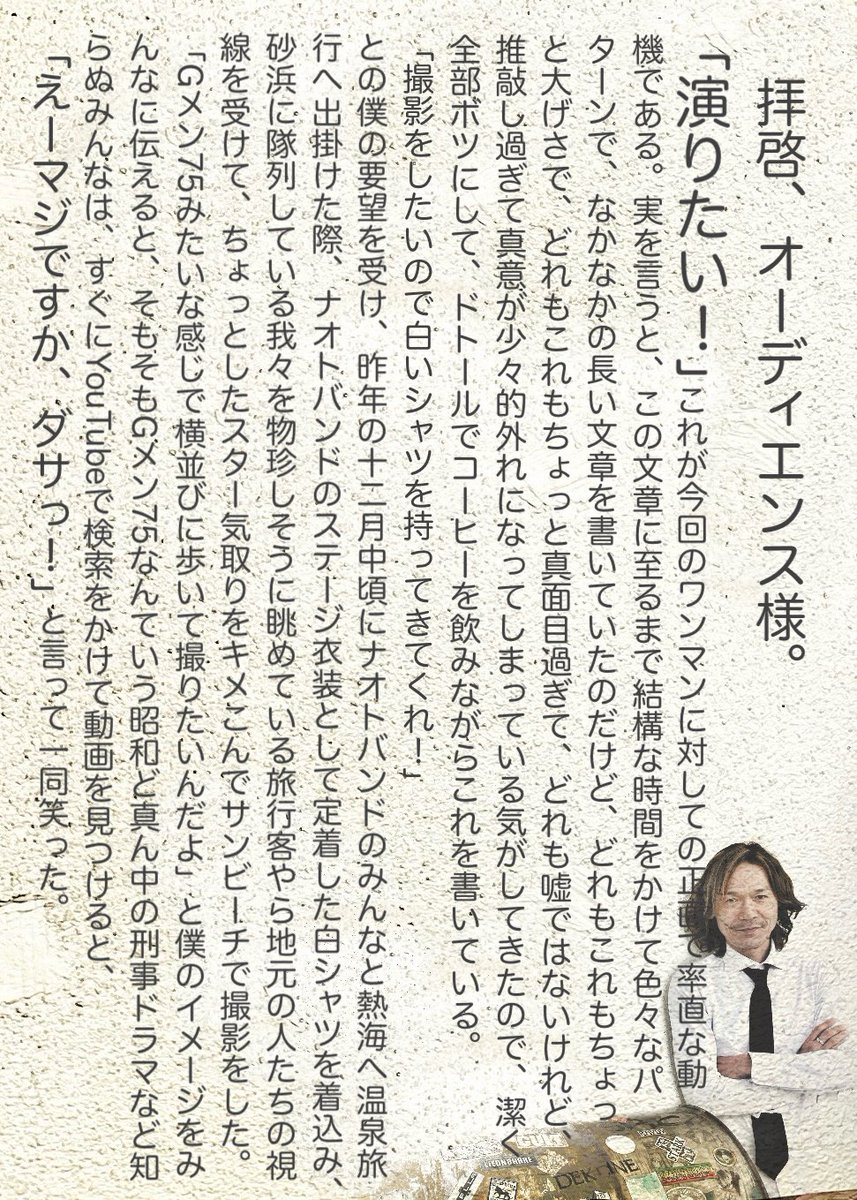 拝啓、オーディエンス様。
「演りたい！」これが今回のワンマンに対しての正直で率直な動
機である。実を言うと、この文章に至るまで結構な時間をかけて色々なパ
ターンで、なかなかの長い文章を書いていたのだけど、どれもこれもちょっ
と大げさで、どれもこれもちょっと真面目過ぎて、どれも嘘ではないけれど、
推敲し過ぎて真意が少々的外れになってしまっている気がしてきたので、潔く
全部ボツにして、ドトールでコーヒーを飲みながらこれを書いている。
「撮影をしたいので白いシャツを持ってきてくれ！」
との僕の要望を受け、昨年の十二月中頃にナオトバンドのみんなと熱海へ温泉旅
行へ出掛けた際、ナオトバンドのステージ衣装として定着した白シャツを着込み、
砂浜に隊列している我々を物珍しそうに眺めている旅行客やら地元の人たちの視
線を受けて、ちょっとしたスター気取りをキメこんでサンビーチで撮影をした。
「Gメン75みたいな感じで横並びに歩いて撮りたいんだよ」と僕のイメージをみ
んなに伝えると、そもそもGメン75なんていう昭和ど真ん中の刑事ドラマなど知
らぬみんなは、すぐにYouTubeで検索をかけて動画を見つけると、
「えーマジですか、ダサっ！」と言って一同笑った。